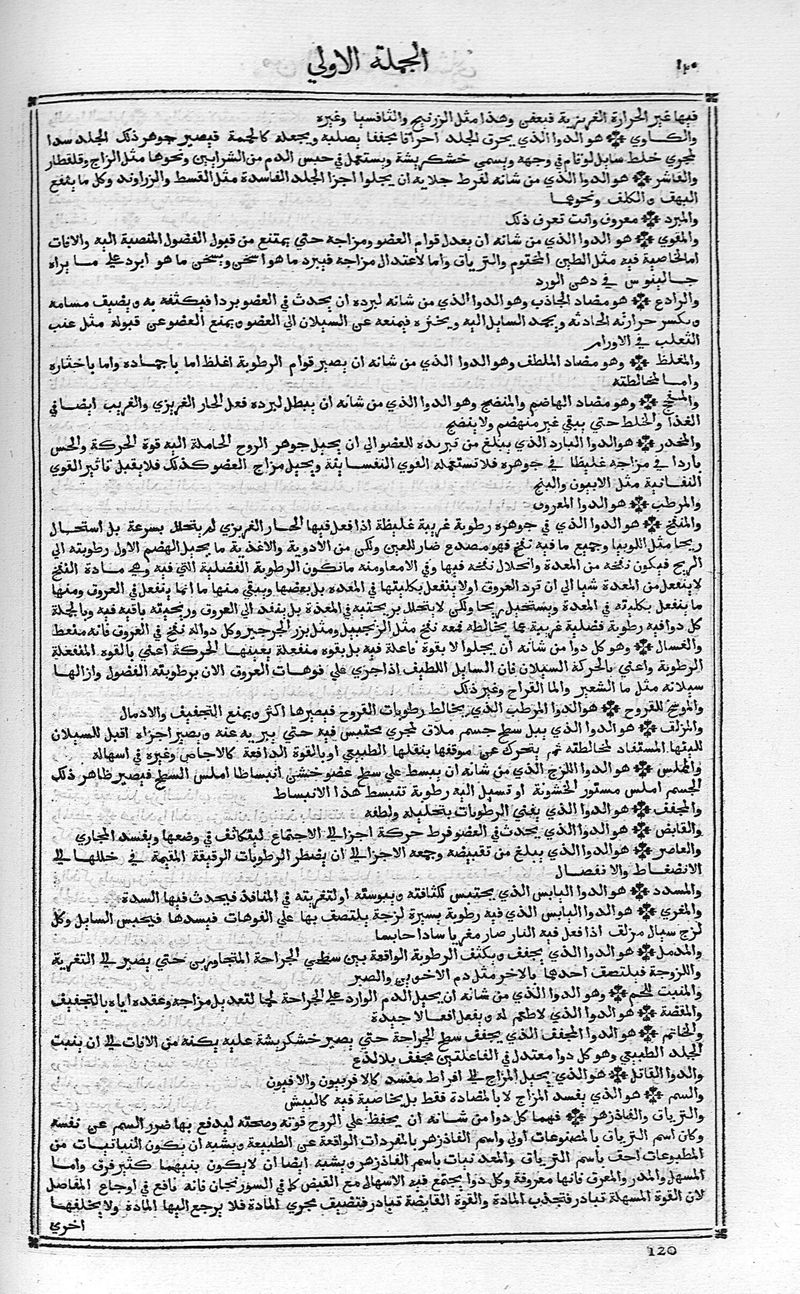 ١٢٠
الجملة الاولي
فيها غير الحرارة الغريزية فيعفن وهذا مثل الزرنيخ والثافسيا وغيره
والكاوي ۞ هو الدوا الذي يحرق الجلد احراقا مجففا بصلبه ويجعله كالحممة فيصير جوهر ذلك الجلد سدا
لمجري خلط سايل لو قام في وجهه ويسمي خشكريشة ويستعمل في حبس الدم من الشرايين ونحوها مثل الزاج وقلقطار
والقاشر ۞ هو الدوا الذي من شانه لفرط جلايه ان يجلوا اجزا الجلد الفاسدة مثل القسط والزراوند وكل ما ينفع
البهق والكلف ونحوهما
والمبرد ۞ معروف وانت تعرف ذلك
والمقوي ۞ هو الدوا الذي من شانه ان يعدل قوام العضو ومزاجه حتي يمتنع من قبول الفضول المنصبة اليه والافات
اما لخاصية فيه مثل الطين المختوم والترياق واما لاعتدال مزاجه فيبرد ما هو اسخن ويسخن ما هو ابرد علي ما يراه
جالينوس في دهن الورد
والرادع ۞ هو مضاد الجاذب وهو الدوا الذي من شانه لبرده ان يحدث في العضو بردا فيكثفه به ويضيف مسامه
ويكسر حرارته الجاذبه ويجمد السايل اليه ويخثره فيمنعه عن السيلان الي العضو ويمنع العضو عن قبوله مثل عنب
الثعلب في الاورام
والمغلظ ۞ وهو مضاد الملطف وهو الدوا الذي من شانه ان يصير قوام الرطوبة اغلظ اما باجماده واما باخثاره
واما لمخالطته
والمفجج ۞ وهو مضاد الهاضم والمنضج وهو الدوا الذي من شانه ان يبطل لبرده فعل الحار الغريزي والغريب ايضا في
الغذا والخلط حتي يبقي غير منهضم ولا ينضج
والمخدر ۞ هو الدوا البارد الذي يبلغ من تبريده للعضو الي ان يحيل جوهر الروح الحاملة اليه قوة الحركة والحس
باردا في مزاجه غليظا في جوهره فلا تستعمله القوي النفسانية ويحيل مزاج العضو كذلك فلا يقبل تاثير القوي
النفسانية مثل الافيون والبنج
والمرطب ۞ هو الدوا المعروف
والمنفخ ۞ هو الدوا الذي في جوهره رطوبة غريبة غليظة اذا فعل فيها الحار الغريزي لم يتحلل بسرعة بل استحال
ريحا مثل اللوبيا وجميع ما فيه نفخ فهو مصدع ضار للعين ولكن من الادوية والاغذية ما يحيل الهضم الاول رطوبته الي
الريح فيكون نفخه من المعدة وانحلال نفخه فيها وفي الامعا ومنه ما تكون الرطوبة الفضلية التي فيه وهي مادة النفخ
لا ينفعل من المعدة شيا الي ان ترد العروق او لا ينفعل بكليتها في المعده بل بعضها ويبقي منها ما انما ينفعل في العروق ومنها
ما ينفعل بكليته في المعدة ويستحيل ريحا ولكن لا يتحلل بريحيته في المعدة بل ينفذ الي العروق وريحيته باقيه فيه وبالجملة
كل دوا فيه رطوبة فضلية غريبة عما يخالطه فمعه نفخ مثل الزنجبيل ومثل بزر الجرجير وكل دوا له نفخ في العروق فانه منعظ
والغسال ۞ وهو كل دوا من شانه ان يجلوا لا بقوة فاعلة فيه بل بقوه منفعلة يعينها الحركة اعني بالقوه المنفعلة
الرطوبة واعني بالحركة السيلان فان السايل اللطيف اذا جري علي فوهات العروق الان برطوبته الفضول وازالها
سيلانه مثل ما الشعير والما القراح وغير ذلك
والموسخ للقروح ۞ هو الدوا المرطب الذي يخالط رطوبات القروح فيصيرها اكثر ويمنع التجفيف والادمال
والمزلق ۞ هو الدوا الذي يبل سطح جسم ملاق لمجري محتبس فيه حتي يبريه عنه ويصير اجزاه اقبل للسيلان
للينها المستفاد لمخالطته ثم يتحرك عن موقفها بثقلها الطبيعي او بالقوة الدافعة كالاجاص وغيره في اسهاله
والمملس ۞ هو الدوا اللزج الذي من شانه ان يبسط علي سطح عضو خشن انبساطا املس السطح فيصير ظاهر ذلك
الجسم املس مستور الخشونة او تسيل اليه رطوبة تنبسط هذا الانبساط
والمجفف ۞ هو الدوا الذي يفني الرطوبات بتحليله ولطفه
والقابض ۞ هو الدوا الذي يحدث في العضو فرط حركة اجزا الي الاجتماع ليتكاثف في وضعها ويفسد المجاري
والعاصر ۞ هو الدوا الذي يبلغ من تقبيضه وجمعه الاجزا الي ان يضطر الرطوبات الرقيقة المقيمة في خللها الي
الانضغاط والانفصال
والمسدد ۞ هو الدوا اليابس الذي يحتبس لكثافته ويبوسته او لتغريته في المنافذ فيحدث فيها السدة
والمغري ۞ هو الدوا اليابس الذي فيه رطوبة يسيرة لزجة يلتصق بها علي الفوهات فيسدها فيحبس السايل وكل
لزج سيال مزلق اذا فعل فيه النار صار مغريا سادا حابسا
والمدمل ۞ هو الدوا الذي يجفف ويكثف الرطوبة الواقعة بين سطحي الجراحة المتجاورين حتي يصير الي التغرية
واللزوجة فيلتصق احدهما بالاخر مثل دم الاخوين والصبر
والمنبت للحم ۞ وهو الدوا الذي من شانه ان يحيل الدم الوارد علي الجراحة لحما لتعديل مزاجه وعقده اياه بالتجفيف
والمفضة ۞ هو الدوا الذي لا طعم له ويفعل افعالا جيدة
والخاتم ۞ هو الدوا المجفف الذي يجفف سطح الجراحة حتي يصير خشكريشة عليه يكنه من الافات الي ان ينبت
الجلد الطبيعي وهو كل دوا معتدل في الفاعلتين مجفف بلا لذع
والدوا القاتل ۞ هو الذي يحيل المزاج الي افراط مفسد كالافربيون والافيون
والسم ۞ هو الذي يفسد المزاج لا بالمضادة فقط بل بخاصية فيه كالبيش
والترياق والفاذزهر ۞ فهما كل دوا من شانه ان يحفظ علي الروح قوته وصحته ليدفع بها ضرر السم عن نفسه
وكان اسم الترياق بالمصنوعات اولي واسم الفاذزهر بالمفردات الواقعة عن الطبيعة ويشبه ان يكون النباتيات من
المطبوعات احق باسم الترياق والمعدنيات باسم الفاذزهر ويشبه ايضا ان لا يكون بينهما كثير فرق واما
المسهل والمدر والمعرق فانها معروفة وكل دوا يجتمع فيه الاسهال مع القبض كما في السورنجان فانه نافع في اوجاع المفاصل
لان القوة المسهلة تبادر فتجذب المادة والقوة القابضة تبادر فتضيف مجري المادة فلا يرجع اليها المادة ولا يخلفها
اخري
120